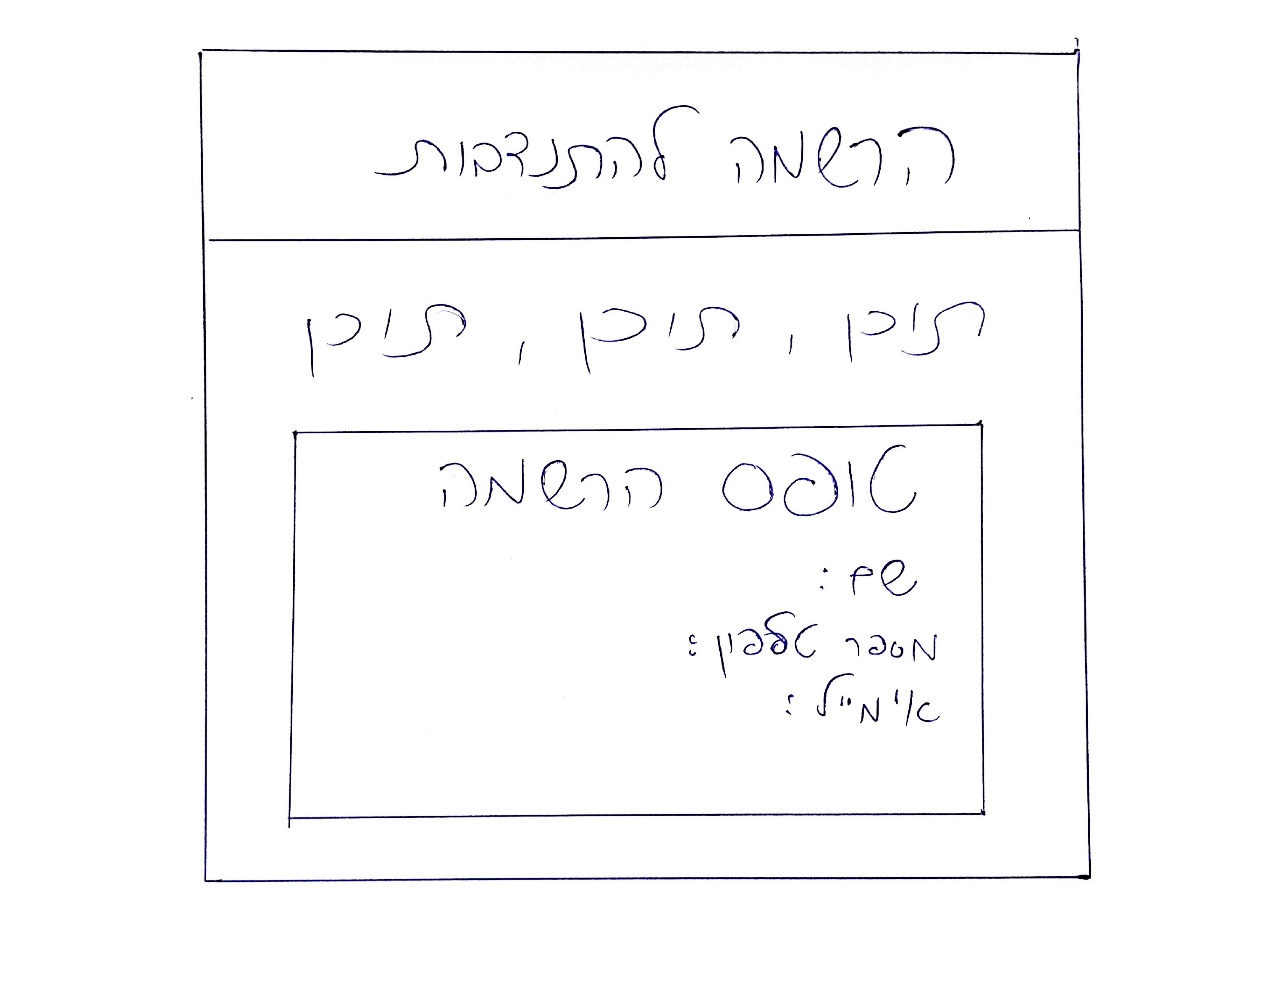 הרשמה להתנדבות
תוכן, תוכן, תוכן
טופס הרשמה
שם:
מספר טלפון:
אימייל: